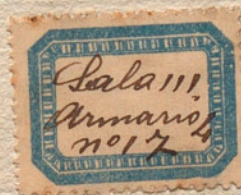 Sala III
Armario 4
no 17